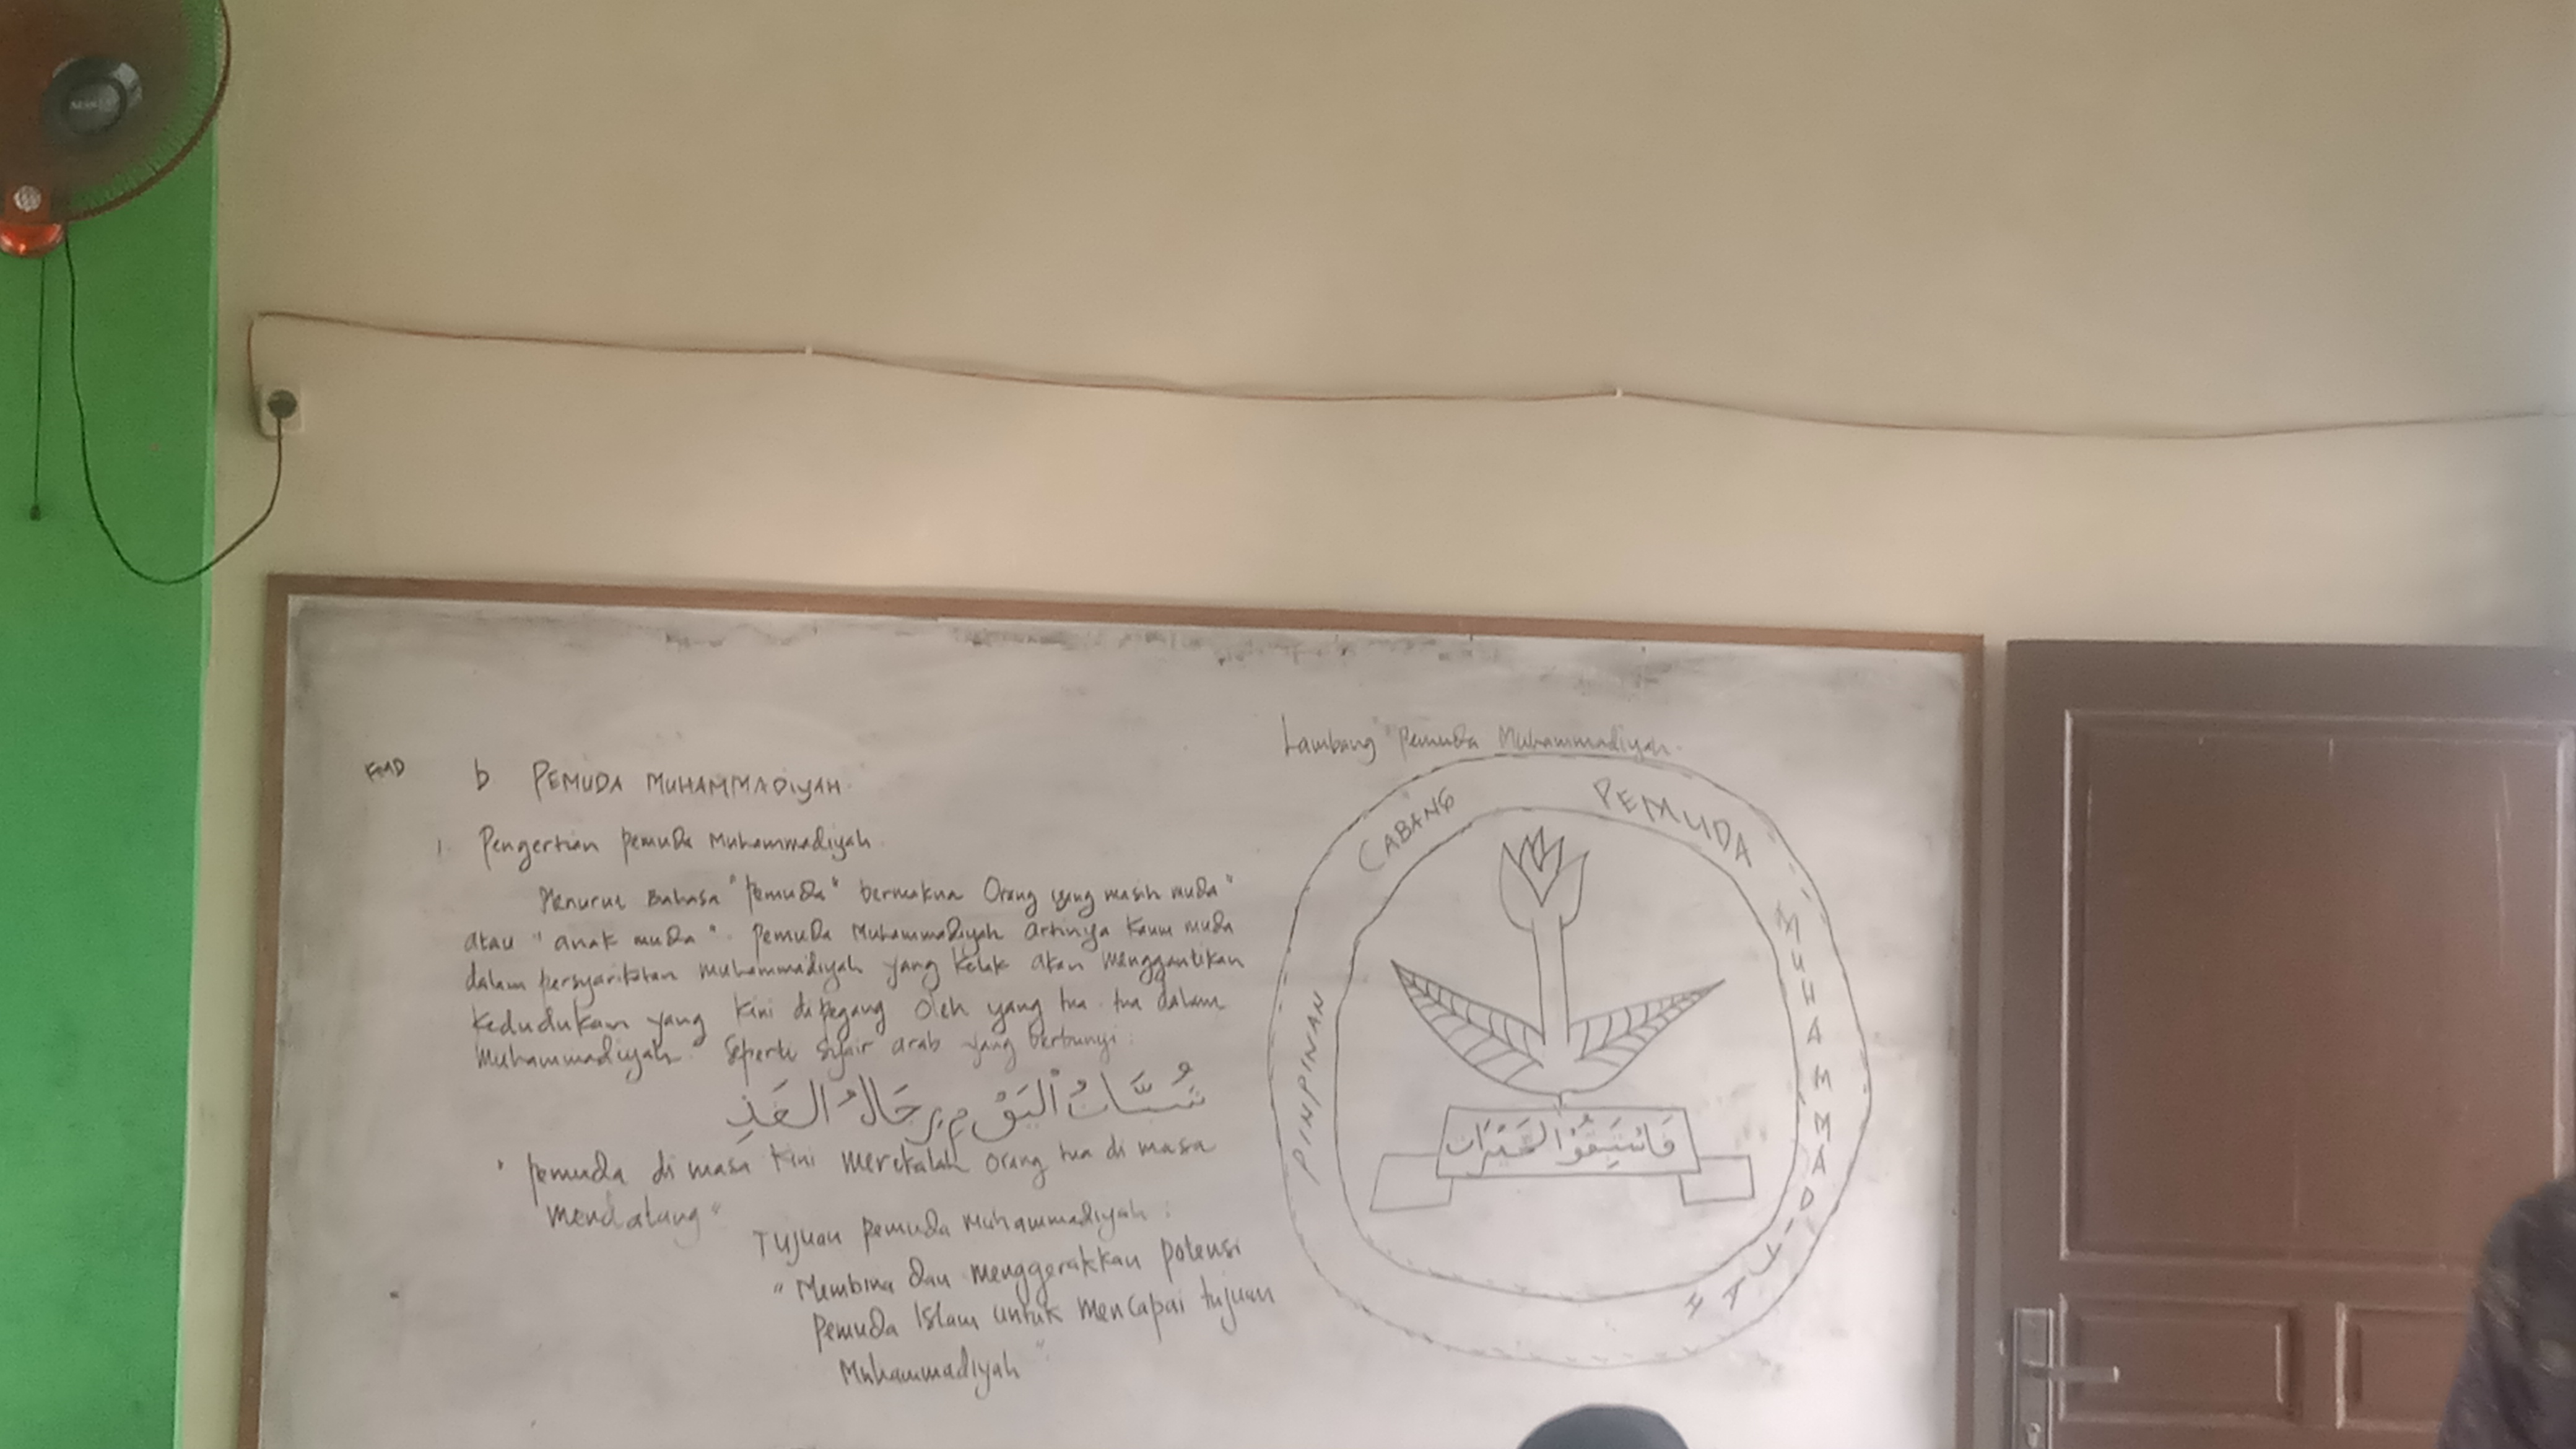 KMD
b PEMUDA MUHAMMADIYAH.
1. Pengertian pemuda Muhammadiyah.
Menurut Bahasa "pemuda" bermakna Orang yang masih muda"
atau "anak muda". pemuda Muhammadiyah artinya kaum muda
dalam persyarikatan Muhammadiyah yang kelak akan menggantikan
kedudukan yang kini dipegang oleh yang tua-tua dalam
Muhammadiyah. Seperti syair arab yang berbunyi:
شُبَّانُ الْيَوْمِ رِجَالُ الغَدِ
"pemuda di masa kini merekalah orang tua di masa
mendatang"
Tujuan pemuda Muhammadiyah:
"Membina dan menggerakkan potensi
pemuda Islam untuk mencapai tujuan
Muhammadiyah"
Lambang Pemuda Muhammadiyah.
PINPINAN CABANG PEMUDA MUHAMMADIYAH
فَاسْتَبِقُوْا الْخَيْرَات